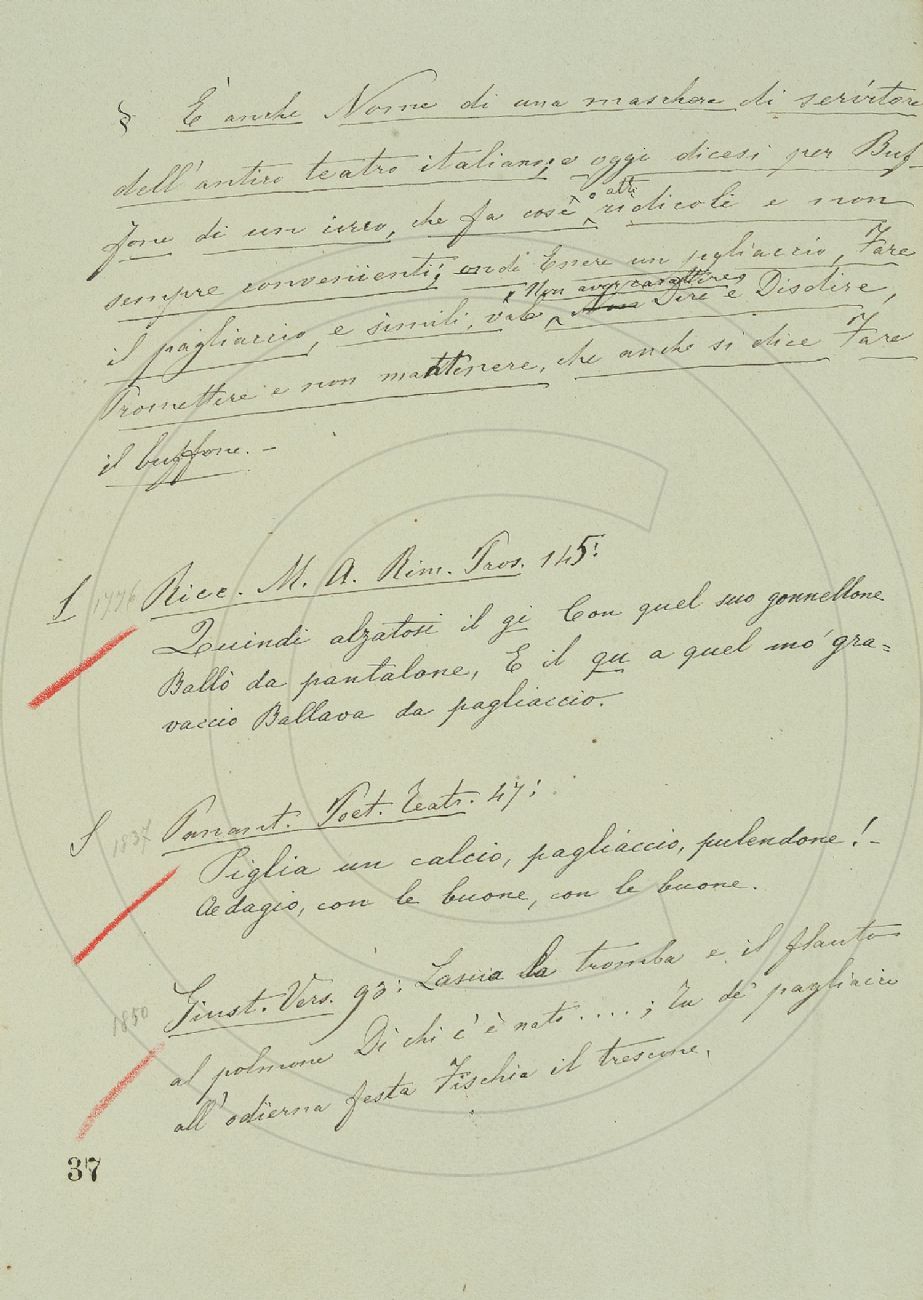 § È anche Nome di una maschera di servitore
dell'antico teatro italiano; e oggi dicesi per Buf-
fone di un circo, che fa cose o atti ridicoli e non
sempre convenienti; ondi Essere un pagliaccio, Fare
il pagliaccio, e simili, vale Non aver carattere Dire e Disdire,
Promettere e non mantenere, che anche si dice Fare
il buffone. -
S 1776 Ricc. M. A. Rim. Pros. 145:
Quindi alzatosi il gi Con quel suo gonnellone
Ballò da pantalone, E il qu a quel mo' gra=
vaccio Ballava da pagliaccio.
S 1837 Panant. Poet. Teatr. 47:
Piglia un calcio, pagliaccio, pulendone! -
Adagio, con le buone, con le buone.
1850 Giust. Vers. 93: Lascia la tromba e il flauto
al polmone Di chi c'è nato ....; Tu de' pagliacci
all'odierna festa Fischia il trescone.
37